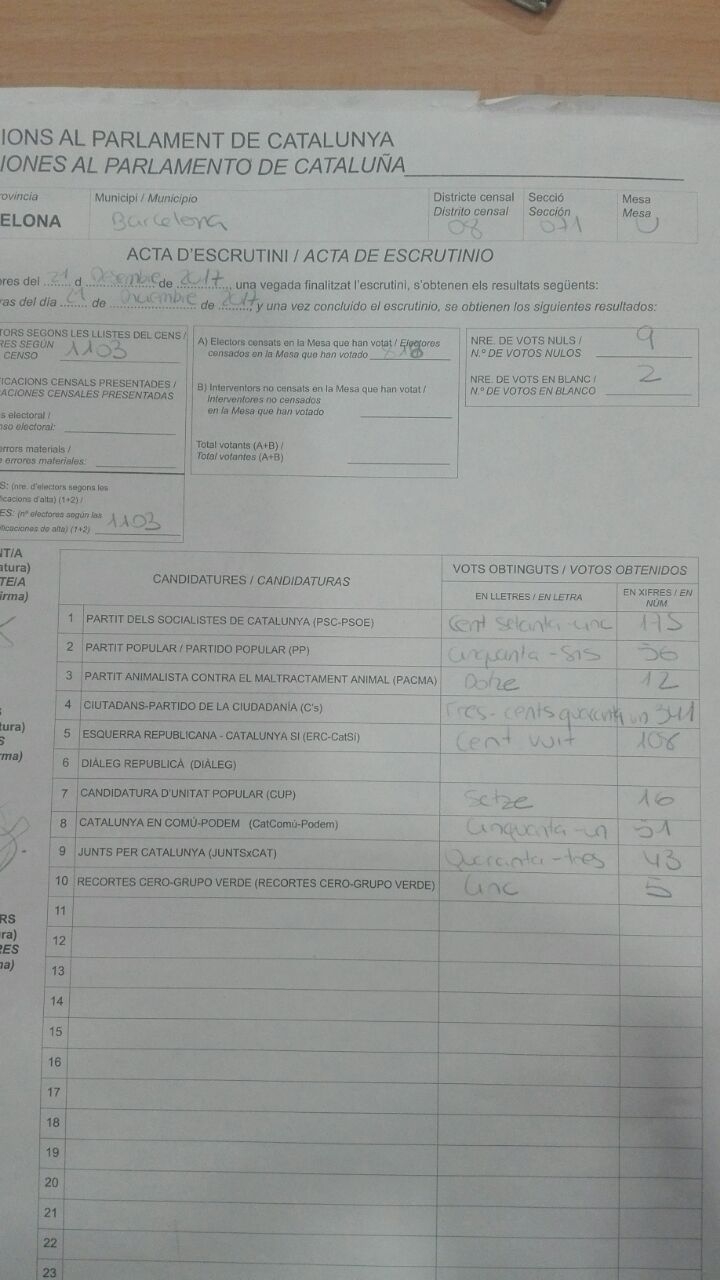 IONS AL PARLAMENT DE CATALUNYA
IONES AL PARLAMENTO DE CATALUÑA
rovincia Municipi / Municipio Districte censal Secció Mesa
Distrito censal Sección Mesa
ELONA Barcelona 08 071 U
ACTA D'ESCRUTINI / ACTA DE ESCRUTINIO
ores del 21 d Desembre de 2017, una vegada finalitzat l'escrutini, s'obtenen els resultats següents:
ras del día 21 de Diciembre de 2017, y una vez concluido el escrutinio, se obtienen los siguientes resultados:
TORS SEGONS LES LLISTES DEL CENS /
RES SEGÚN
CENSO 1103
FICACIONS CENSALS PRESENTADES /
ACIONES CENSALES PRESENTADAS
s electoral /
nso electoral:
errors materials /
e errores materiales:
S: (nre. d'electors segons les
ificacions d'alta) (1+2) /
ES: (nº electores según las
ificaciones de alta) (1+2) 1103
A) Electors censats en la Mesa que han votat / Electores
censados en la Mesa que han votado 818
B) Interventors no censats en la Mesa que han votat /
Interventores no censados
en la Mesa que han votado
Total votants (A+B) /
Total votantes (A+B)
NRE. DE VOTS NULS /
N.º DE VOTOS NULOS 9
NRE. DE VOTS EN BLANC /
N.º DE VOTOS EN BLANCO 2
NT/A
atura)
TE/A
irma)
S
tura)
S
rma)
RS
ra)
RES
na)
CANDIDATURES / CANDIDATURAS VOTS OBTINGUTS / VOTOS OBTENIDOS
EN LLETRES / EN LETRA EN XIFRES / EN
NÚM
1 PARTIT DELS SOCIALISTES DE CATALUNYA (PSC-PSOE) Cent setanta-cinc 175
2 PARTIT POPULAR / PARTIDO POPULAR (PP) Cinquanta-sis 56
3 PARTIT ANIMALISTA CONTRA EL MALTRACTAMENT ANIMAL (PACMA) Dotze 12
4 CIUTADANS-PARTIDO DE LA CIUDADANÍA (C's) Tres-cents quaranta un 341
5 ESQUERRA REPUBLICANA - CATALUNYA SÍ (ERC-CatSí) Cent vuit 108
6 DIÀLEG REPUBLICÀ (DIÀLEG)
7 CANDIDATURA D'UNITAT POPULAR (CUP) Setze 16
8 CATALUNYA EN COMÚ-PODEM (CatComú-Podem) Cinquanta-un 51
9 JUNTS PER CATALUNYA (JUNTSxCAT) Quaranta-tres 43
10 RECORTES CERO-GRUPO VERDE (RECORTES CERO-GRUPO VERDE) Cinc 5
11
12
13
14
15
16
17
18
19
20
21
22
23